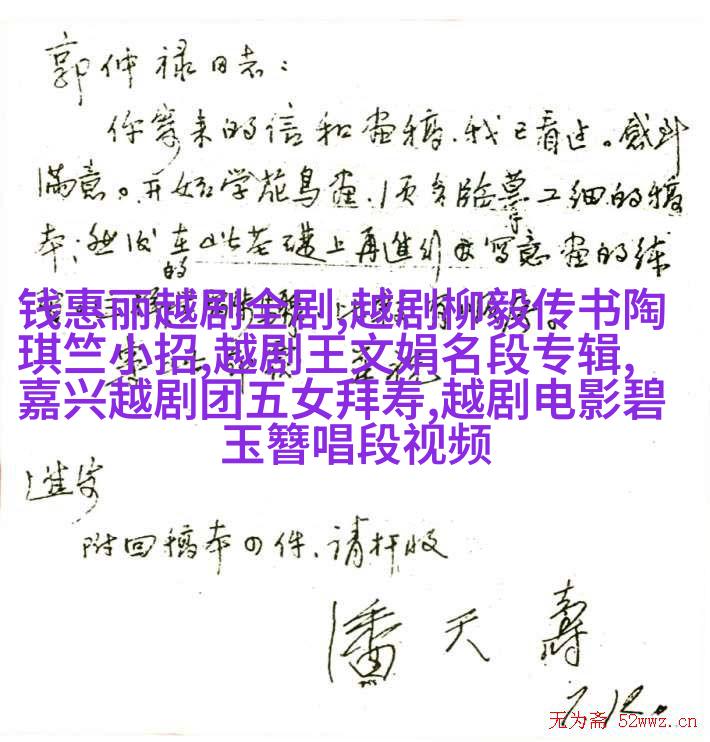 郭仲禄同志：
你寄来的信和画稿、我已看过。感到
满意。开始学花鸟画、须多临摹工细的稿
本；然后在此基础上再进行写意画的练
的
钱惠丽越剧全剧,越剧柳毅传书陶
琪竺小招,越剧王文娟名段专辑,
嘉兴越剧团五女拜寿,越剧电影碧
玉簪唱段视频
进安
附回稿本四件、请打收
潘天寿
7.12.
无为斋 52wwz.cn